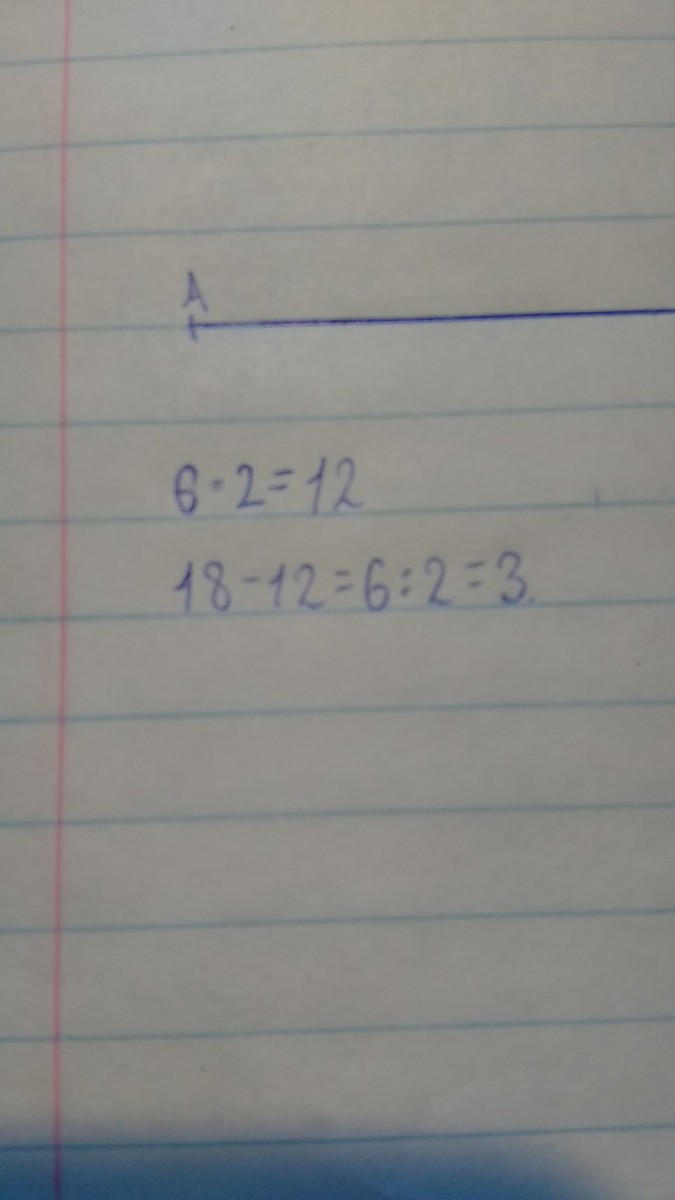 A
6·2=12
18-12=6:2=3.